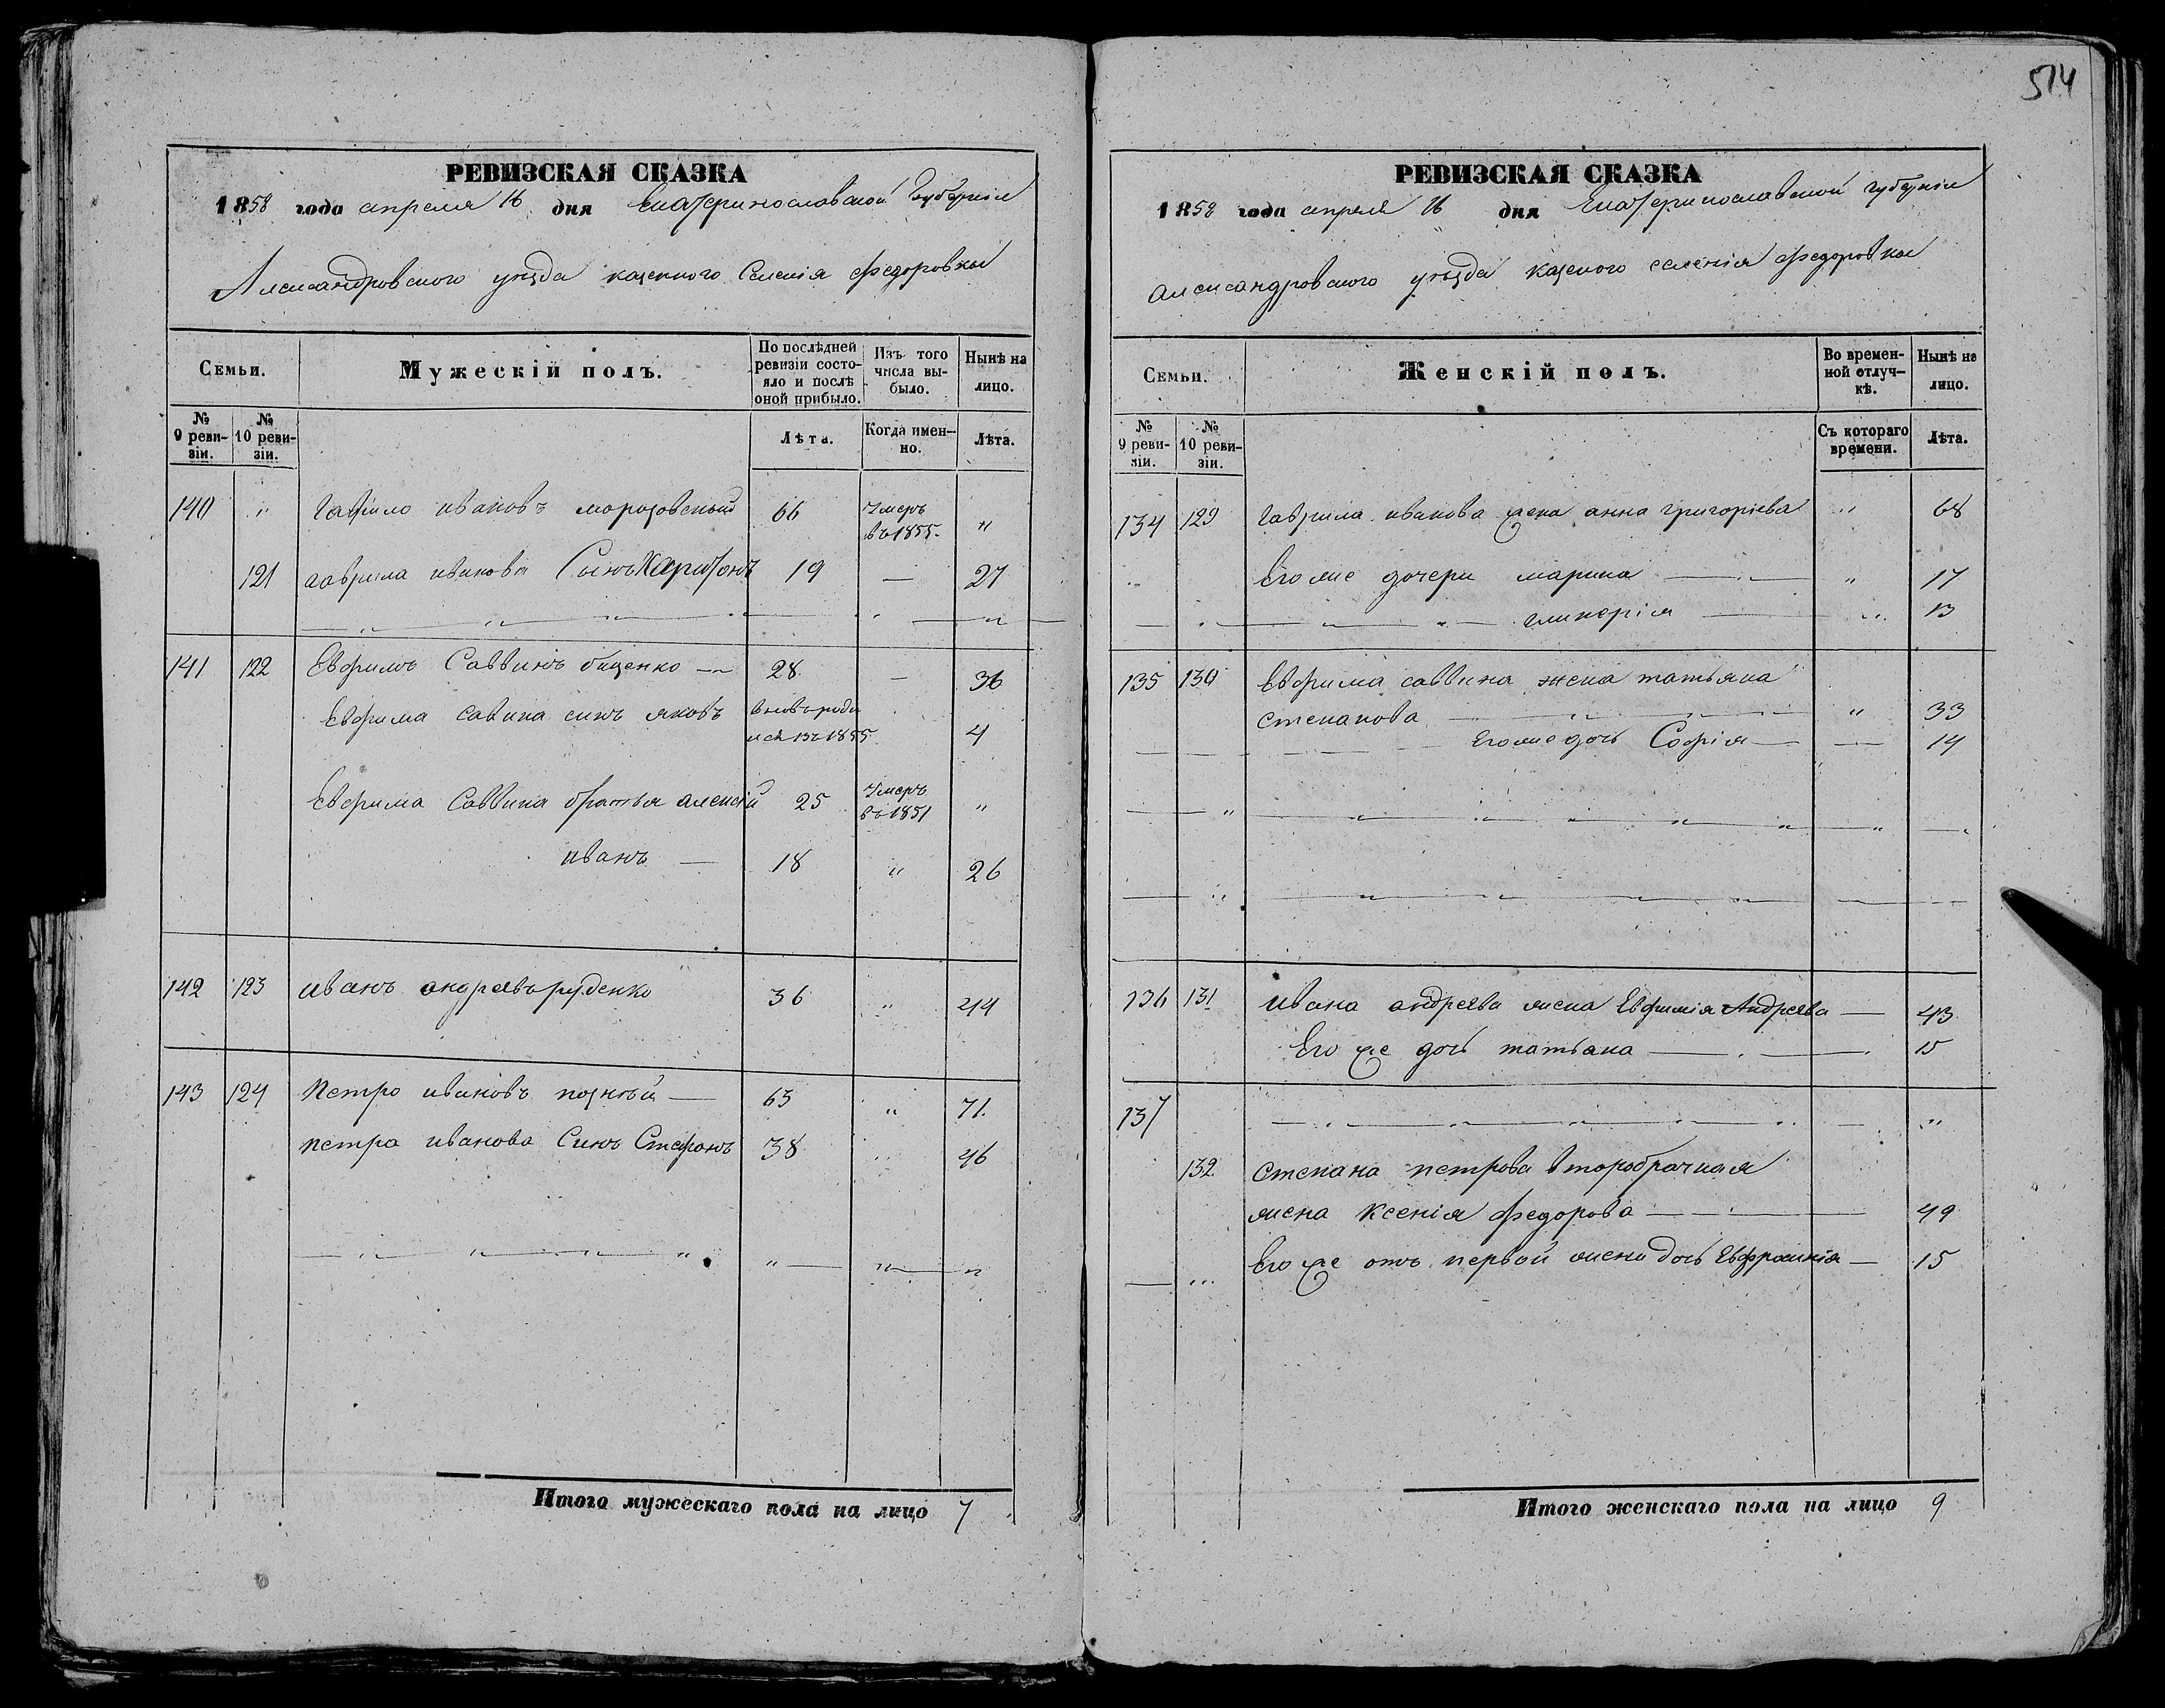 514
РЕВИЗСКАЯ СКАЗКА
1858 года апреля 16 дня Екатеринославской Губернiи
Александровского уезда казенного Селенiя Федоровки
Семьи.
Мужескiй полъ.
По послѣдней ревизiи состояло и послѣ оной прибыло.
Изъ того числа выбыло.
Нынѣ на лицо.
№ 9 ревизiи.
№ 10 ревизiи.
Лѣта.
Когда именно.
Лѣта.
140 " Гаврило ивановъ морозовскый 66 Умеръ въ 1855. "
121 гаврила иванова Сынъ Харитонъ 19 — 27
141 122 Евфимъ Саввинъ 28 — 36
Евфима савина синъ яковъ вновь роди
лся въ 1855 4
Евфима Саввина братья алексiй 25 Умеръ въ 1851 "
иванъ — 18 " 26
142 123 иванъ андреевъ руденко 36 " 44
143 124 Петро ивановъ позный — 63 " 71.
петра иванова Синъ Стефанъ 38 46
Итого мужескаго пола на лицо 7
РЕВИЗСКАЯ СКАЗКА
1858 года апреля 16 дня Екатеринославской губернiи
александровского уезда казеного селенiя федоровки
Семьи.
Женскiй полъ.
Во временной отлучкѣ.
Нынѣ на лицо.
№ 9 ревизiи.
№ 10 ревизiи.
Съ котораго времени.
Лѣта.
134 129 гаврила иванова жена анна григорiева " 68
Его же дочери марина — " 17
гликерiя — " 13
135 130 Евфима саввина жена татьяна
степанова — " 33
Его же дочь Софiя — — 14
136 131 ивана андреева жена Евфимiя Андреева — 43
Его же дочь татьяна — 15
137 "
132 степана петрова второбрачная
жена Ксенiя федорова — 49
Его же отъ первой жени дочь Евфросинiя — 15
Итого женскаго пола на лицо 9